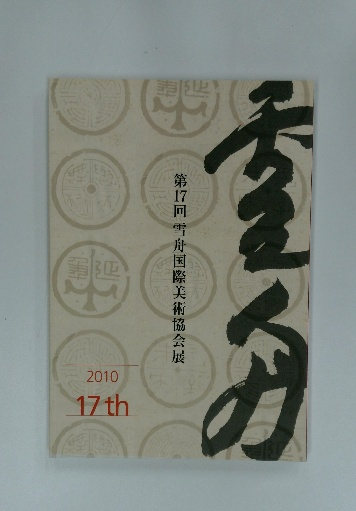 雪舟
第17回 雪舟国際美術協会展
2010
17th